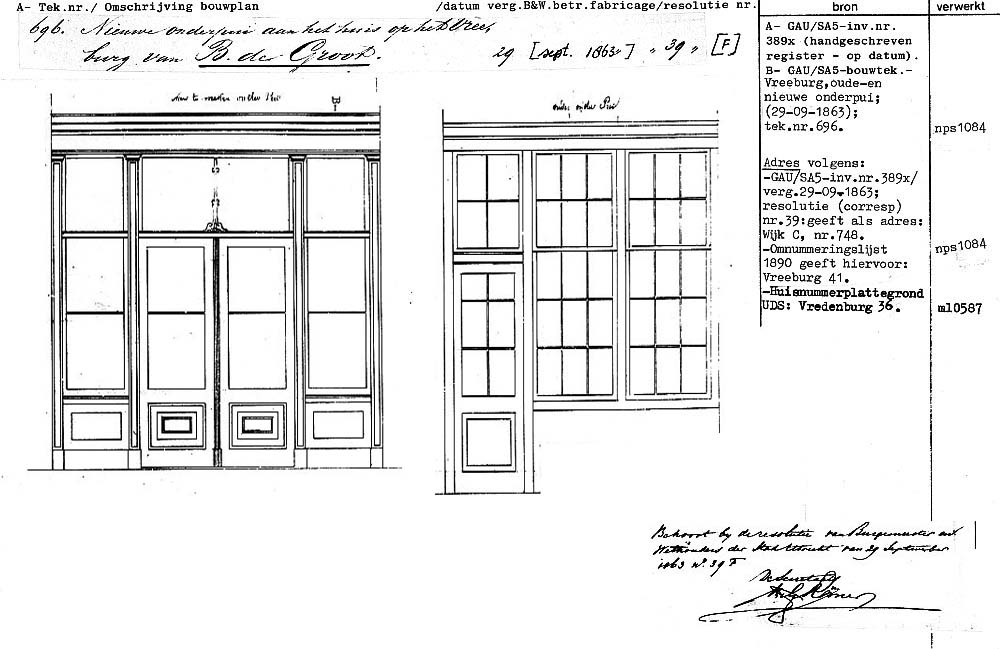 A- Tek.nr./ Omschrijving bouwplan /datum verg.B&W.betr.fabricage/resolutie nr. bron verwerkt
696. Nieuwe onderpui aan het huis op het Vree,
burg van B. de Groot. 29 [sept. 1863] " 39 " [F]
A- GAU/SA5-inv.nr.
389x (handgeschreven
register - op datum).
B- GAU/SA5-bouwtek.-
Vreeburg,oude-en
nieuwe onderpui;
(29-09-1863);
tek.nr.696. nps1084
Adres volgens:
-GAU/SA5-inv.nr.389x/
verg.29-09-1863;
resolutie (corresp)
nr.39:geeft als adres:
Wijk C, nr.748.
-Omnummeringslijst nps1084
1890 geeft hiervoor:
Vreeburg 41.
-Huisnummerplattegrond
UDS: Vredenburg 36. ml0587
Nieuw te maken onder Pui
B
oude onder Pui
Behoort bij de resolutie van Burgemeester en
Wethouders der Stad Utrecht van 29 September
1863 No. 39 F
De Secretaris